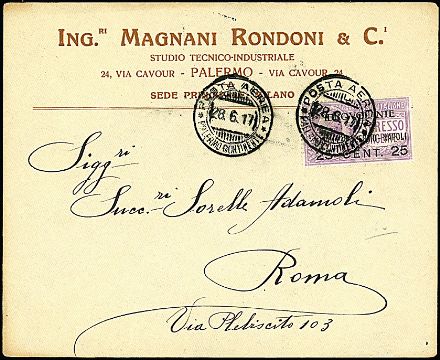 ING.RI MAGNANI RONDONI & C.I
STUDIO TECNICO-INDUSTRIALE
24, VIA CAVOUR - PALERMO - VIA CAVOUR, 24
SEDE
POSTA AEREA
28.6.17
POSTA AEREA
28.6.17
25 CENT. 25
Sigg.ri
Succ.ri Sorelle Adamoli
Roma
Via Plebiscito 103